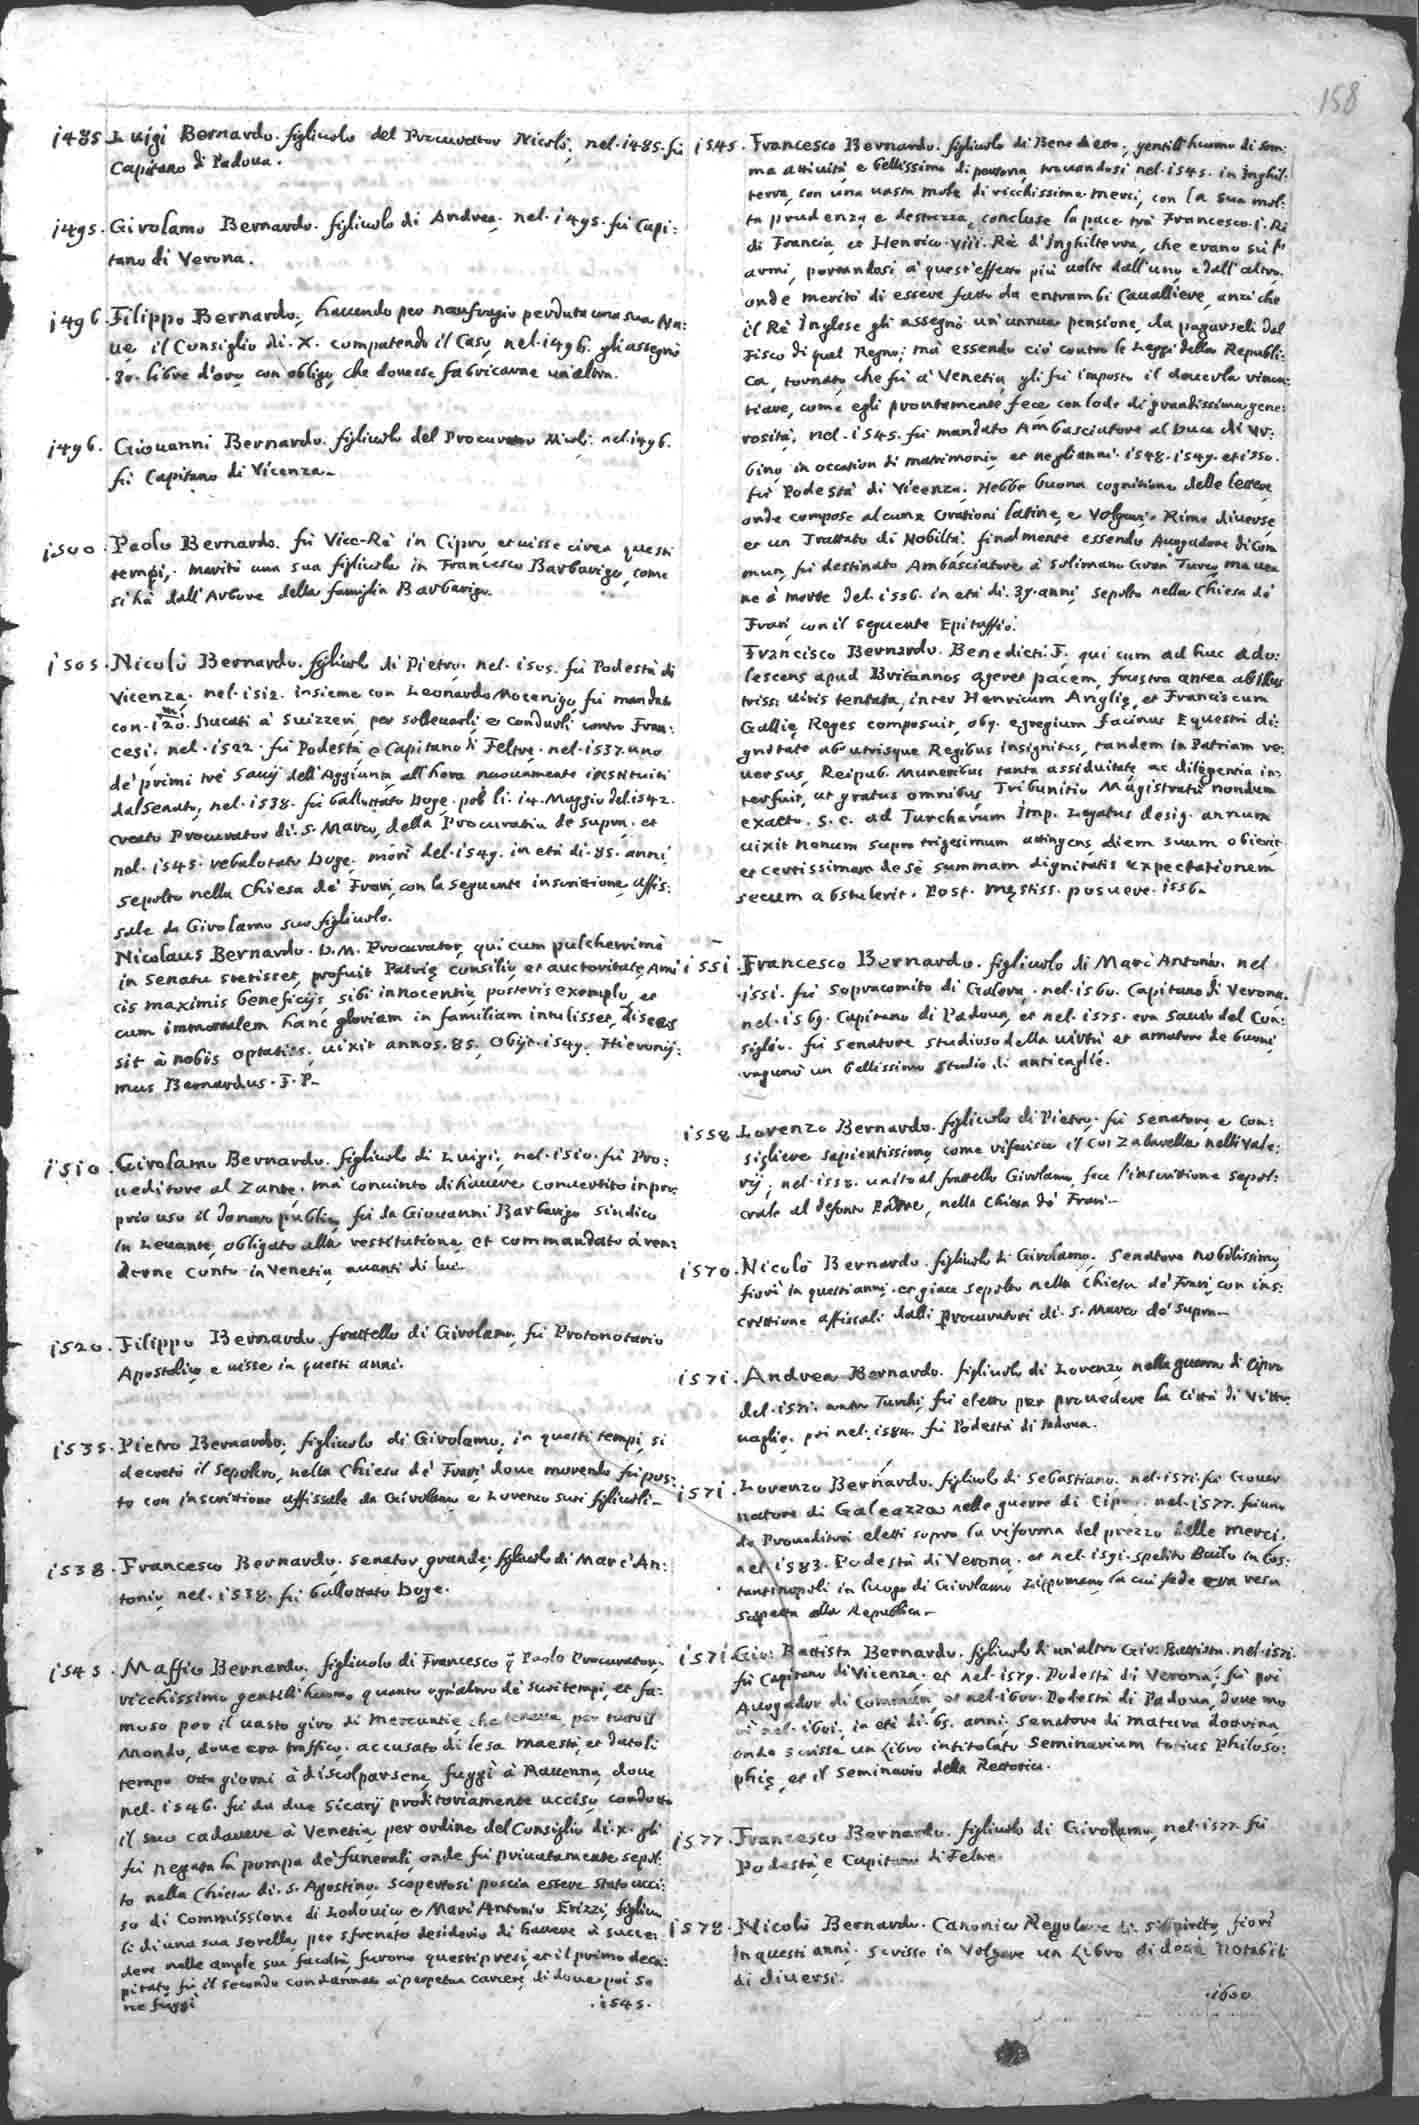 158
1485. Luigi Bernardo. figliuolo del Procurator Nicolò, nel. 1485. fù
Capitano di Padoua.
1495. Girolamo Bernardo. figliuolo di Andrea. nel. 1495. fù Capi:
tano di Verona.
1496. Filippo Bernardo, hauendo per naufragio perduta una sua Na:
ue il Consiglio di. X. compatendo il Caso, nel. 1496. gli assegnò
.30. libre d'oro, con obligo, che douesse fabricarne un'altra.
1496. Giouanni Bernardo. figliuolo del Procurator Nicolò. nel. 1496.
fù Capitano di Vicenza.
1500. Paolo Bernardo. fù Vice-Rè in Cipro, et uisse circa questi
tempi, maritò una sua figliuola in Francesco Barbarigo, come
si hà dall'Arbore della famiglia Barbarigo.
1505. Nicolò Bernardo. figliuolo di Pietro. nel. 1505. fù Podestà di
Vicenza. nel. 1512. insieme con Leonardo Mocenigo, fù mandato
con. 120. Ducati à Suizzeri, per solleuarli, e condurli contro Fran:
cesi. nel. 1522. fù Podestà, e Capitano di Feltre. nel. 1537. uno
de' primi trè Sauij dell'Aggiunta, all'hora nuouamente instituiti
dal Senato, nel. 1538. fù ballottato Doge. poi li. 14. Maggio del. 1542.
creato Procurator di. S. Marco, della Procuratia de supra. et
nel. 1545. reballotato Doge. morì del. 1549. in età di. 85. anni,
sepolto nella Chiesa de' Frari, con la seguente inscrittione, affis:
sale da Girolamo suo figliuolo.
Nicolaus Bernardo. D. M. Procurator, qui cum pulcherrimè
in Senatu stetisset, profuit Patrię consilio, et auctoritate, Ami
cis maximis beneficijs, sibi innocentia, posteris exemplo, et
cum immortalem hanc gloriam in familiam intulisset, disces
sit à nobis optatiss. uixit annos. 85. Obijt. 1549. Hieronij:
mus Bernardus. F. P.
1510. Girolamo Bernardo. figliuolo di Luigi, nel. 1510. fù Pro:
ueditore al Zante. mà conuinto di hauere conuertito in pro:
prio uso il danaro publico, fù da Giouanni Barbarigo Sindico
in Leuante, obligato alla restitutione, et commandato à ren:
derne Conto in Venetia auanti di lui.
1520. Filippo Bernardo. frattello di Girolamo, fù Protonotario
Apostolico, e uisse in questi anni.
1535. Pietro Bernardo, figliuolo di Girolamo, in questi tempi, si
decretò il Sepolcro, nella Chiesa de' Frari, doue morendo fù pos:
to con inscrittione affissale da Girolamo e Lorenzo suoi figliuoli.
1538. Francesco Bernardo, Senator grande, figliuolo di Marc'An:
tonio, nel. 1538. fù ballottato Doge.
1545. Maffio Bernardo. figliuolo di Francesco q Paolo Procurator,
ricchissimo gentill'huomo quanto ogn'altro de' suoi tempi, et fa:
moso per il uasto giro di mercantie, che teneua, per tutto il
Mondo, doue era traffico, accusato di lesa maestà, et datoli
tempo otto giorni à discolparsene, fuggì à Rauenna, doue
nel. 1546. fù da due Sicarij proditoriamente ucciso, condotto
il suo cadauere à Venetia, per ordine del Consiglio di. X. gli
fù negata la pompa de' funerali, onde fù priuatamente sepol:
to nella Chiesa di. S. Agostino. scopertosi poscia essere stato ucci:
so di Commissione di Lodouico, e Marc'Antonio Erizzi, figliuo
li di una sua sorella, per sfrenato desiderio di hauere à succe:
dere nelle ample sue facoltà, furono questi presi, et il primo deca:
pitato, fù il secondo condannato à perpetua carcere, di doue poi se
ne fuggì
.1545.
1545. Francesco Bernardo. figliuolo di Benedetto, gentill'huomo di som:
ma attiuità, e bellissimo di persona, trouandosi nel. 1545. in Inghil:
terra, con una uasta mole di ricchissime merci, con la sua mol:
ta prudenza, e destrezza, concluse la pace trà Francesco. I. Rè
di Francia, et Henrico. VIII. Rè d'Inghilterra, che erano sù l'
armi, portandosi à quest'effetto più uolte dall'uno, e dall'altro.
onde meritò di essere fatto da entrambi Caualliere, anzi che
il Rè Inglese gli assegnò un'annua pensione, da pagarseli dal
Fisco di quel Regno; mà essendo ciò contro le Leggi della Republi:
ca, tornato, che fù à Venetia, gli fù imposto il douerla rinon:
tiare, come egli prontamente fece con lode di grandissima gene:
rosità, nel. 1545. fù mandato Ambasciatore al Duca di Vr:
bino, in occasion di matrimonio, et negli anni. 1548. 1549. et 1550.
fù Podestà di Vicenza. Hebbe buona cognitione delle lettere,
onde compose alcune Orationi latine, e Volgari, Rime diuerse,
et un Trattato di Nobiltà. finalmente essendo Auogadore di Com
mun, fù destinato Ambasciatore à Solimano Gran Turco, ma uen
ne à morte del. 1556. in età di. 39. anni, sepolto nella Chiesa de'
Frari, con il seguente Epitaffio.
Francisco Bernardo. Benedicti. F. qui cum ad huc ado:
lescens apud Britannos ageret pacem, frustra antea ab illus
triss: uiris tentata, inter Henricum Anglię, et Franciscum
Gallię Reges composuit, obq. egregium facinus Equestri di:
gnitate ab utrisque Regibus insignitus, tandem in Patriam re:
uersus, Reipub. muneribus tanta assiduitate, ac diligentia in:
terfuit, ut gratus omnibus, Tribunitio Magistratu nondum
exacto. S. C. ad Turcharum Imp. Legatus desig. annum
uixit nonum supra trigesimum attingens diem suum obierit,
et certissimam de se summam dignitatis expectationem
secum abstulerit. Post. męstiss. posuere. 1556.
1551. Francesco Bernardo. figliuolo di Marc'Antonio. nel
.1551. fù Sopracomito di Galera. nel. 1560. Capitano di Verona.
nel. 1569. Capitano di Padoua, et nel. 1575. era Sauio del Con:
siglio. fù Senatore studioso della uirtù et amatore de buoni,
ragunò un bellissimo studio di anticaglie.
1558. Lorenzo Bernardo. figliuolo di Pietro. fù Senatore, e Con:
sigliere sapientissimo, come riferisce il Coi Zabarella nelli Vale:
rij; nel. 1558. unito al frattello Girolamo, fece l'inscrittione sepol:
crale al defonto Padre, nella Chiesa de' Frari.
1570. Nicolò Bernardo. figliuolo di Girolamo, Senatore nobilissimo,
fiorì in questi anni. et giace sepolto nella Chiesa de' Frari, con ins:
crittione affissali dalli Procuratori di. S. Marco de supra.
1571. Andrea Bernardo. figliuolo di Lorenzo, nella guerra di Cipro
del. 1571. contro Turchi, fù eletto per prouedere la Città di Vitto:
uaglie. poi nel. 1584. fù Podestà di Padoua.
1571. Lorenzo Bernardo. figliuolo di Sebastiano. nel. 1571. fù Gouer
natore di Galeazza nelle guerre di Cipro. nel. 1577. fù uno
de Proueditori eletti sopra la riforma del prezzo delle merci.
nel 1583. Podestà di Verona. et nel. 1591. spedito Bailo in Cos:
tantinopoli in luogo di Girolamo Lippomano, la cui fede era resa
sospetta alla Republica.
1571. Gio: Battista Bernardo. figliuolo di un'altro Gio: Battista. nel. 1571.
fù Capitano di Vicenza. et nel. 1579. Podestà di Verona, fù poi
Auogador di Commun, et nel. 1600. Podestà di Padoua, doue mo
rì nel. 1601. in età di. 65. anni. Senatore di matura dottrina
onde scrisse un Libro intitolato Seminarium totius Philoso:
phię, et il Seminario della Rettorica.
1577. Francesco Bernardo. figliuolo di Girolamo, nel. 1577. fù
Podestà, e Capitano di Feltre.
1578. Nicolò Bernardo. Canonico Regolare di. S. Spirito, fiorì
in questi anni. scrisse in Volgare un Libro di detti notabili
di diuersi.
.1600